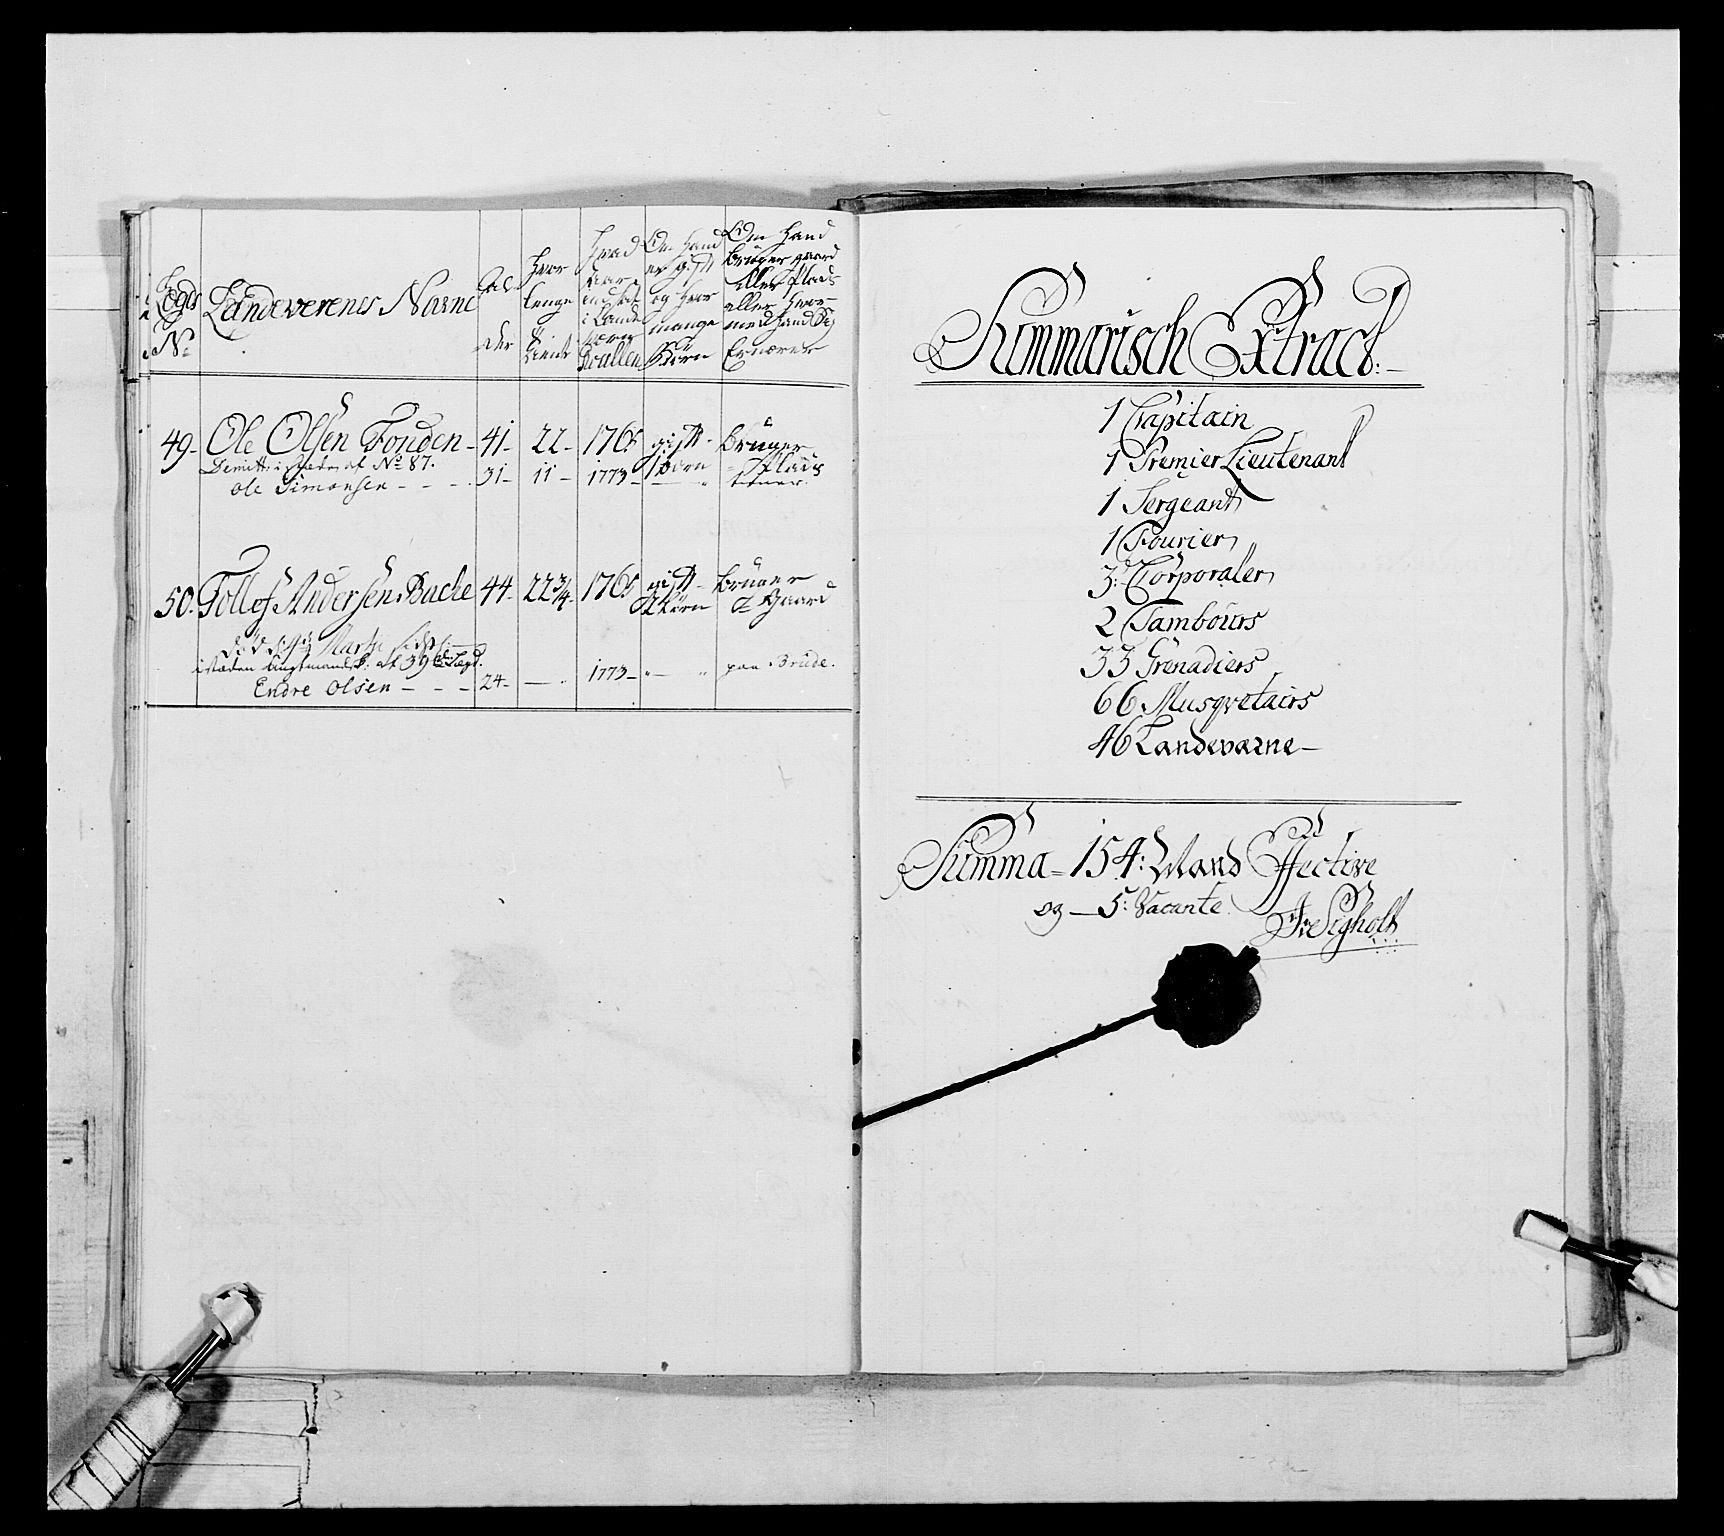 Legds No
Landeverenes Navne
Alder
Hvor lenge tient
Hvad Aar indsat i Landeværn
Om hand er gift og hvor mange Børn
Om hand bruger gaard eller Plads eller hvor med hand sig Ernærer
49- Ole Olsen Fonden - 41- 22- 1765 gift 1 børn Bruger Plads
Demitt: i stæden af No 87.
Ole Simonsen - - - 31- 11- 1773-
50. Tollof Andersen Bache 44- 22 3/4- 1765 gift børn Bruger Gaard
død
i stæden af 39
Endre Olsen - - - 24- 1773-
Summarisch Extract:-
1 Capitain
1 Premier Lieutenant
1 Sergeant
1 Fourier
3: Corporaler
2 Tambours
33 Grenadiers
66 Musqvetairs
46 Landeværne-
Summa = 154: Mand Effective
og - 5: Vacante
Sigholt